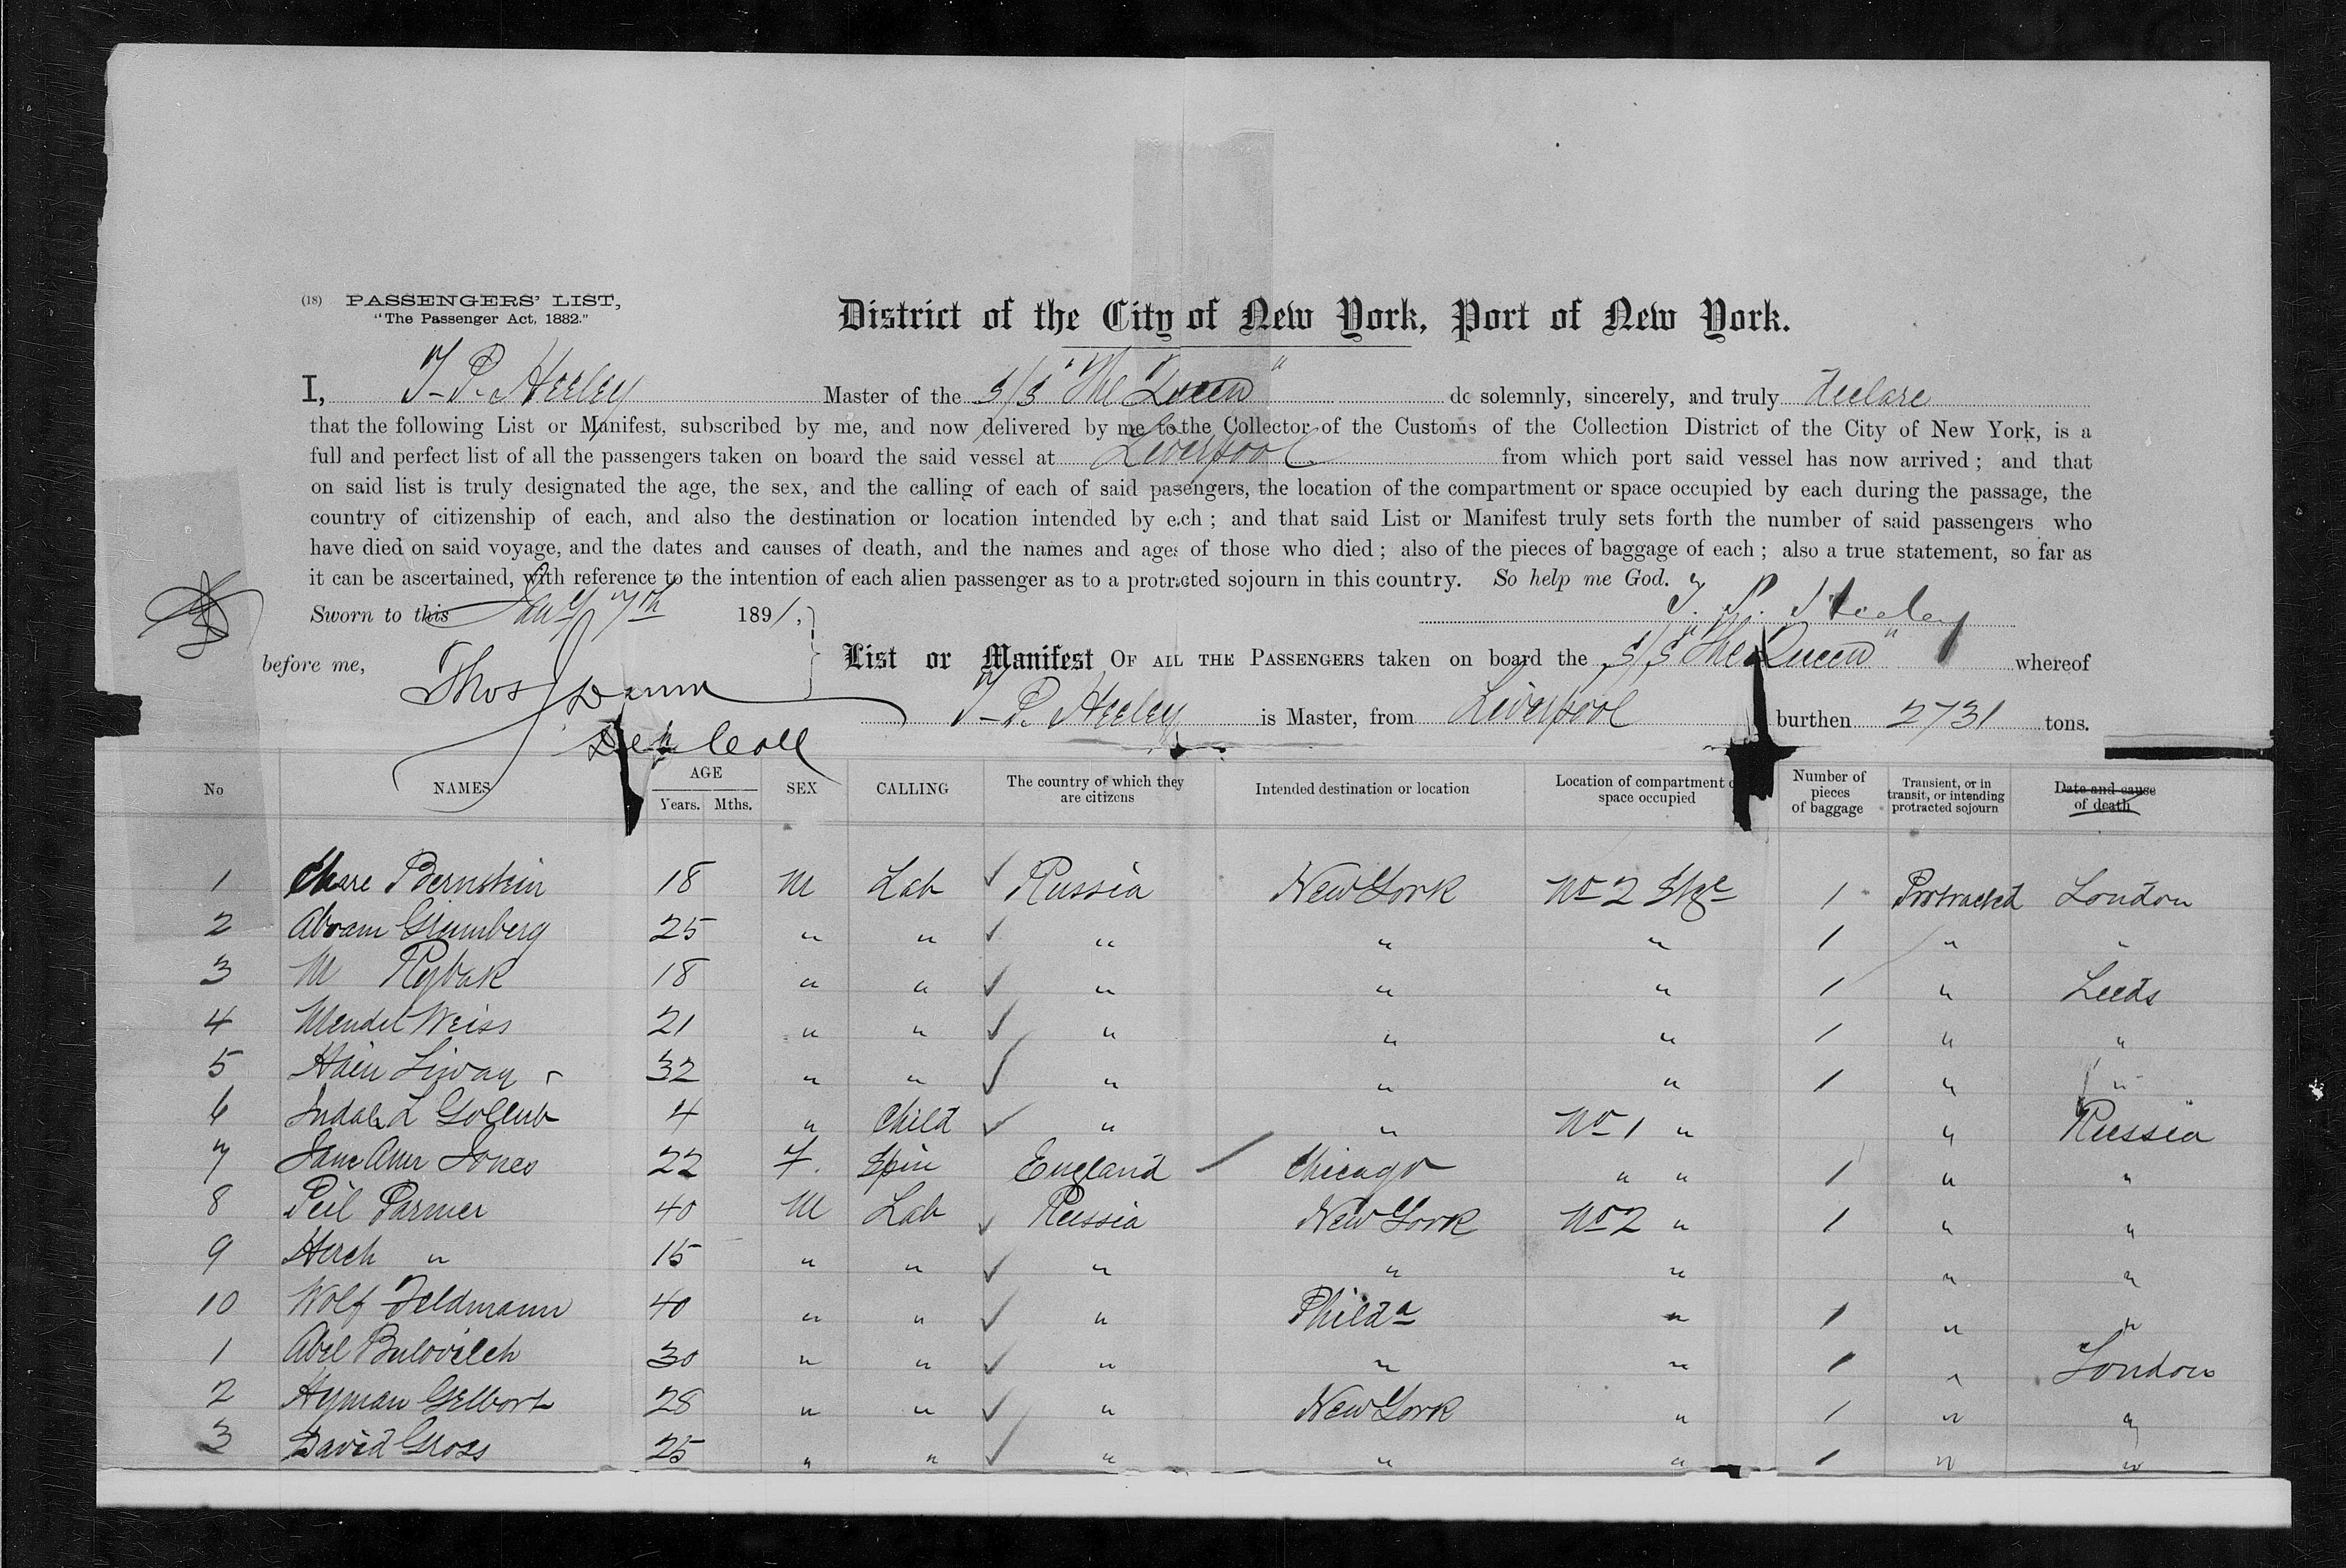 (18) PASSENGERS' LIST,
"The Passenger Act, 1882."
District of the City of New York, Port of New York.
I, T. P. Heeley Master of the S/S "The Queen" do solemnly, sincerely, and truly declare
that the following List or Manifest, subscribed by me, and now delivered by me to the Collector of the Customs of the Collection District of the City of New York, is a
full and perfect list of all the passengers taken on board the said vessel at Liverpool from which port said vessel has now arrived; and that
on said list is truly designated the age, the sex, and the calling of each of said pasengers, the location of the compartment or space occupied by each during the passage, the
country of citizenship of each, and also the destination or location intended by each; and that said List or Manifest truly sets forth the number of said passengers who
have died on said voyage, and the dates and causes of death, and the names and ages of those who died; also of the pieces of baggage of each; also a true statement, so far as
it can be ascertained, with reference to the intention of each alien passenger as to a protracted sojourn in this country. So help me God.
Sworn to this Jany 7th 1891, T. P. Heeley
before me, Thos Dunn
Dep Coll
List or Manifest OF ALL THE PASSENGERS taken on board the S/S "The Queen" whereof
T. P. Heeley is Master, from Liverpool burthen 2731 tons.
No NAMES AGE Years. Mths. SEX CALLING The country of which they are citizens Intended destination or location Location of compartment or space occupied Number of pieces of baggage Transient, or in transit, or intending protracted sojourn Date and cause of death
1 Bernstein 18 M Lab ✓ Russia New York No 2 Stge 1 Protracted London
2 Abram Grumberg 25 " " ✓ " " " 1 " "
3 M Rybak 18 " " ✓ " " " 1 " Leeds
4 Mendel Weiss 21 " " ✓ " " " 1 " "
5 32 " " ✓ " " " 1 " "
6 L Gollub 4 " Child ✓ " " No 1 " " Russia
7 Jane Ann Jones 22 F. Spin England ✓ Chicago " " 1 " "
8 Peil Parmer 40 M Lab ✓ Russia New York No 2 " 1 " "
9 Herch " 15 " " ✓ " " " " "
10 Wolf Feldmann 40 " " ✓ " Philda " 1 " "
1 Abel Bulovitch 30 " " ✓ " " " 1 " London
2 Hyman Gelbort 28 " " ✓ " New York " 1 " "
3 David Gross 25 " " ✓ " " " 1 " "